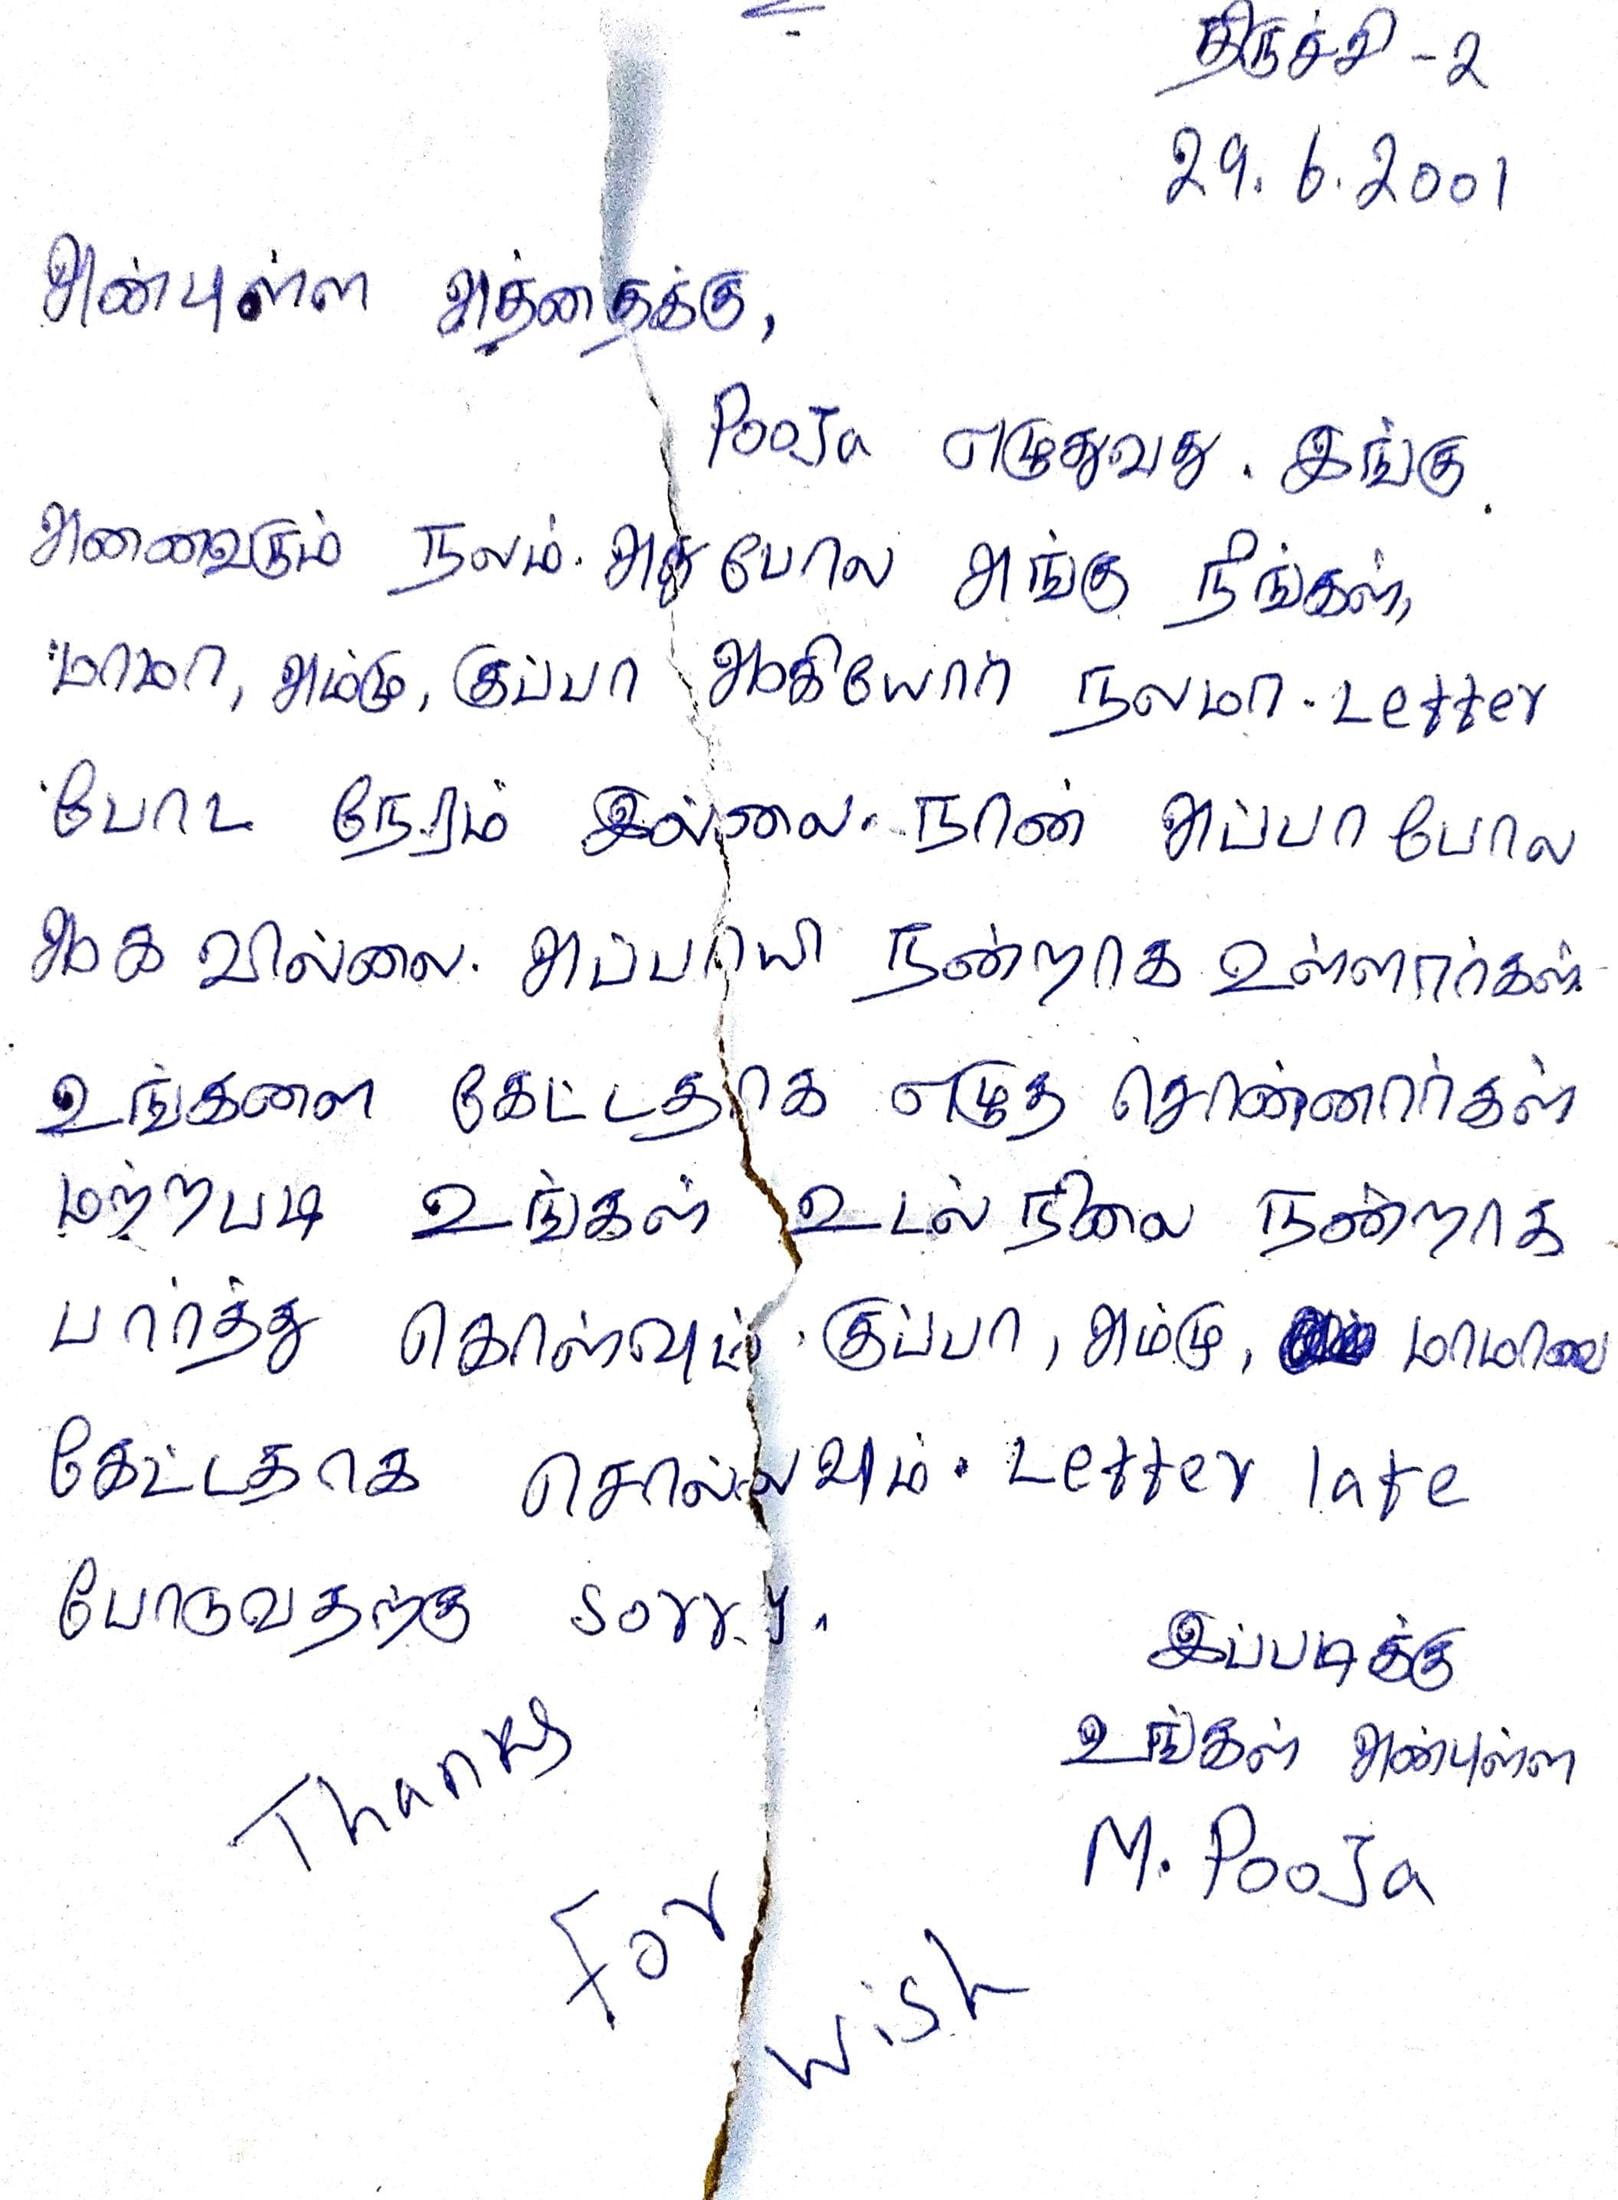 திருச்சி - 2
29. 6. 2001
அன்புள்ள அத்தைக்கு,
Pooja எழுதுவது. இங்கு
அனைவரும் நலம். அது போல அங்கு நீங்கள்,
மாமா, அம்மு, குப்பா ஆகியோர் நலமா. Letter
போட நேரம் இல்லை. நான் அப்பா போல
ஆக வில்லை. அப்பாயி நன்றாக உள்ளார்கள்.
உங்களை கேட்டதாக எழுத சொன்னார்கள்
மற்றபடி உங்கள் உடல் நிலை நன்றாக
பார்த்து கொள்வும். குப்பா, அம்மு, மாமாவை
கேட்டதாக சொல்லவும். Letter late
போடுவதற்கு sorry.
இப்படிக்கு
உங்கள் அன்புள்ள
M. Pooja
Thanks
For
Wish